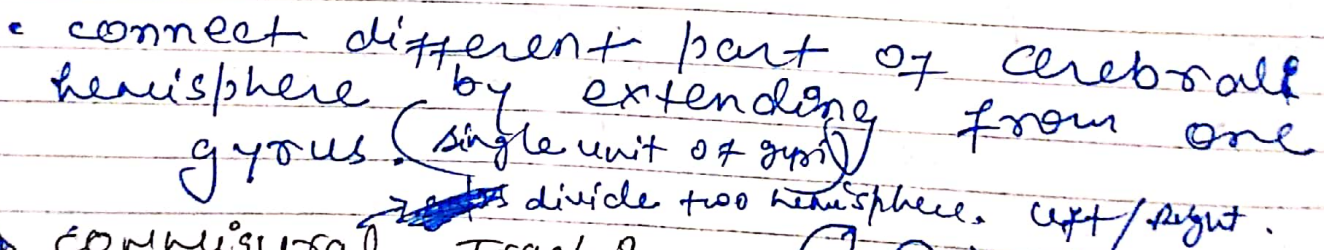 • connect different part of cerebrall
hemisphere by extending from one
gyrus. (single unit of gyri)
→ divide two hemisphere. left/Right.
commissural Tract